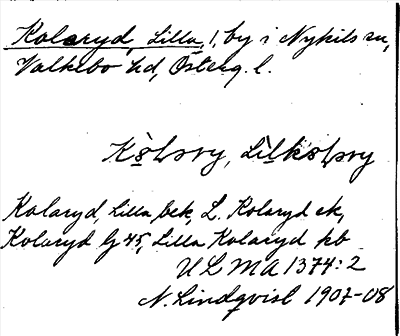 Kolaryd, Lilla, 1, by i Nykils sn,
Valkebo hd, Österg. l.
Kolaryd, Lilla, bek, L. Kolaryd ek,
Kolaryd G 45, Lilla Kolaryd kb
ULMA 1374:2
N. Lindqvist 1907-08